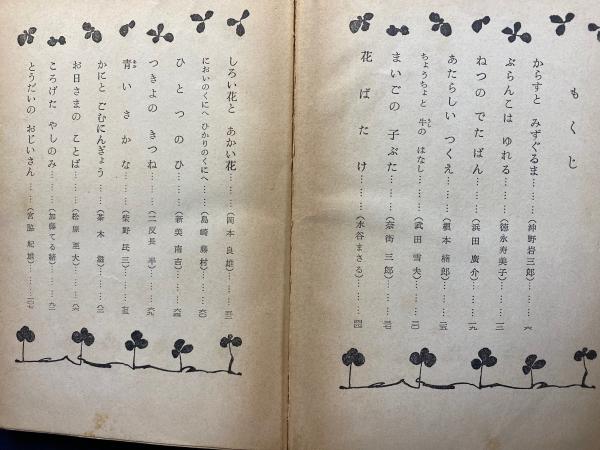 もくじ
からすと みずぐるま………(沖野岩三郎)………六
ぶらんこは ゆれる………(徳永寿美子)………一三
ねつの でたばん………(浜田廣介)………一九
あたらしい つくえ………(槇本楠郎)………二五
ちょうちょと 牛の はなし………(武田雪夫)………三〇
まいごの 子ぶた………(奈街三郎)………三七
花ばたけ………(水谷まさる)………四四
しろい花と あかい花………(岡本良雄)………五三
においのくにへ ひかりのくにへ………(島崎藤村)………六〇
ひとつの ひ………(新美南吉)………六四
つきよの きつね………(二反長半)………六九
青い さかな………(柴野民三)………七五
かにと ごむにんぎょう………(茶木滋)………八三
お日さまの ことば………(松原至大)………八六
ころげた やしのみ………(加藤てる緒)………九二
とうだいの おじいさん………(宮脇紀雄)………一〇七